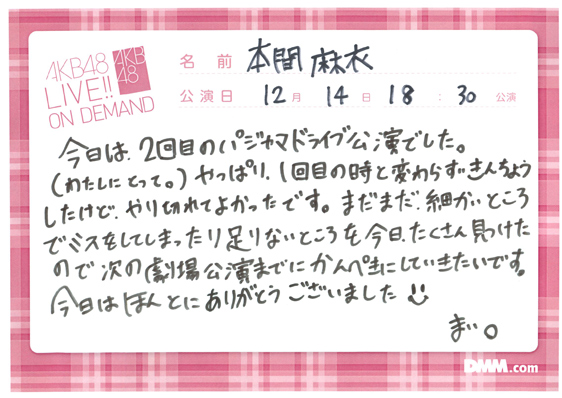 AKB48
LIVE!!
ON DEMAND
AKB
48
名前 本間麻衣
公演日 12月14日18:30公演
今日は、2回目のパジャマドライブ公演でした。
(わたしにとって。)やっぱり、1回目の時と変わらずきんちょう
したけど、やり切れてよかったです。まだまだ、細かいところ
でミスをしてしまったり足りないところを今日、たくさん見つけた
ので次の劇場公演までにかんぺきにしていきたいです。
今日はほんとにありがとうございました
まい。
DMM.com